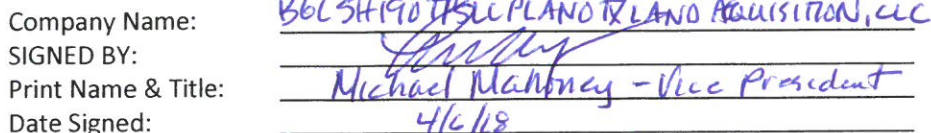 Company Name: BGC SH190 HSLC PLANO TX LAND AQUISITION, LLC
SIGNED BY:
Print Name & Title: Michael Mahoney - Vice President
Date Signed: 4/6/18